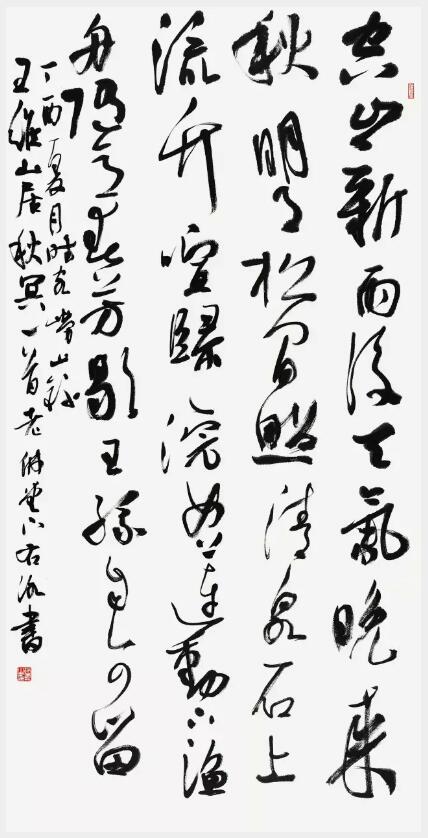 空山新雨後天氣晚來
秋明月松間照清泉石上
流竹喧歸浣女蓮動下漁
舟隨意春芳歇王孫自可留
丁酉夏月時客嶗山錄
王維山居秋冥一首老堂書